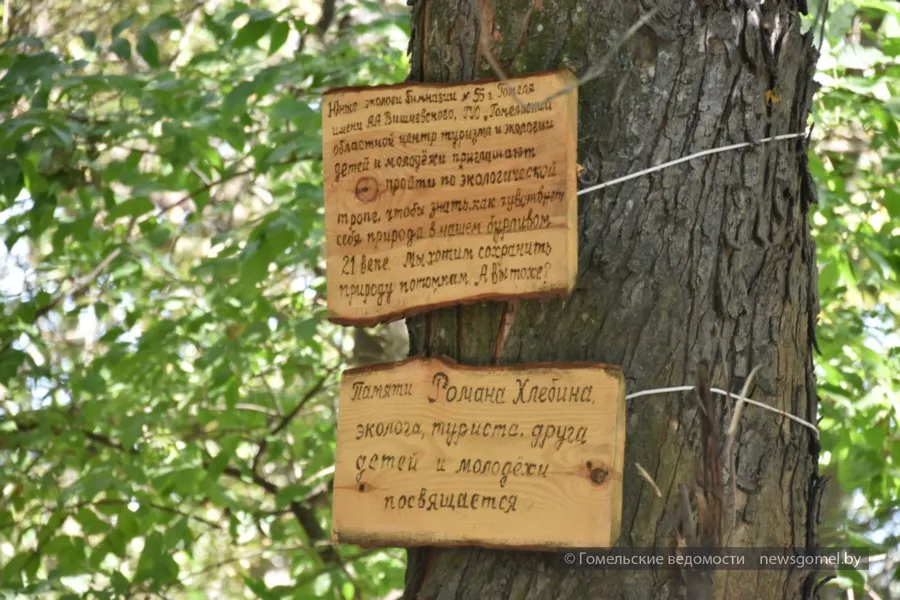 Юнко экологи Гимназии № 56 г. Гомеля
имени А.А Вишневского, ГУО "Гомельский
областной центр туризма и экологии
детей и молодёжи приглашают
пройти по экологической
тропе, чтобы знать, как чувствует
себя природа в нашем бурливом
21 веке. Мы хотим сохранить
природу потомкам. А вы тоже?
Памяти Романа Хлебина,
эколога, туриста, друга
детей и молодёжи
посвящается
© Гомельские ведомости newsgomel.by